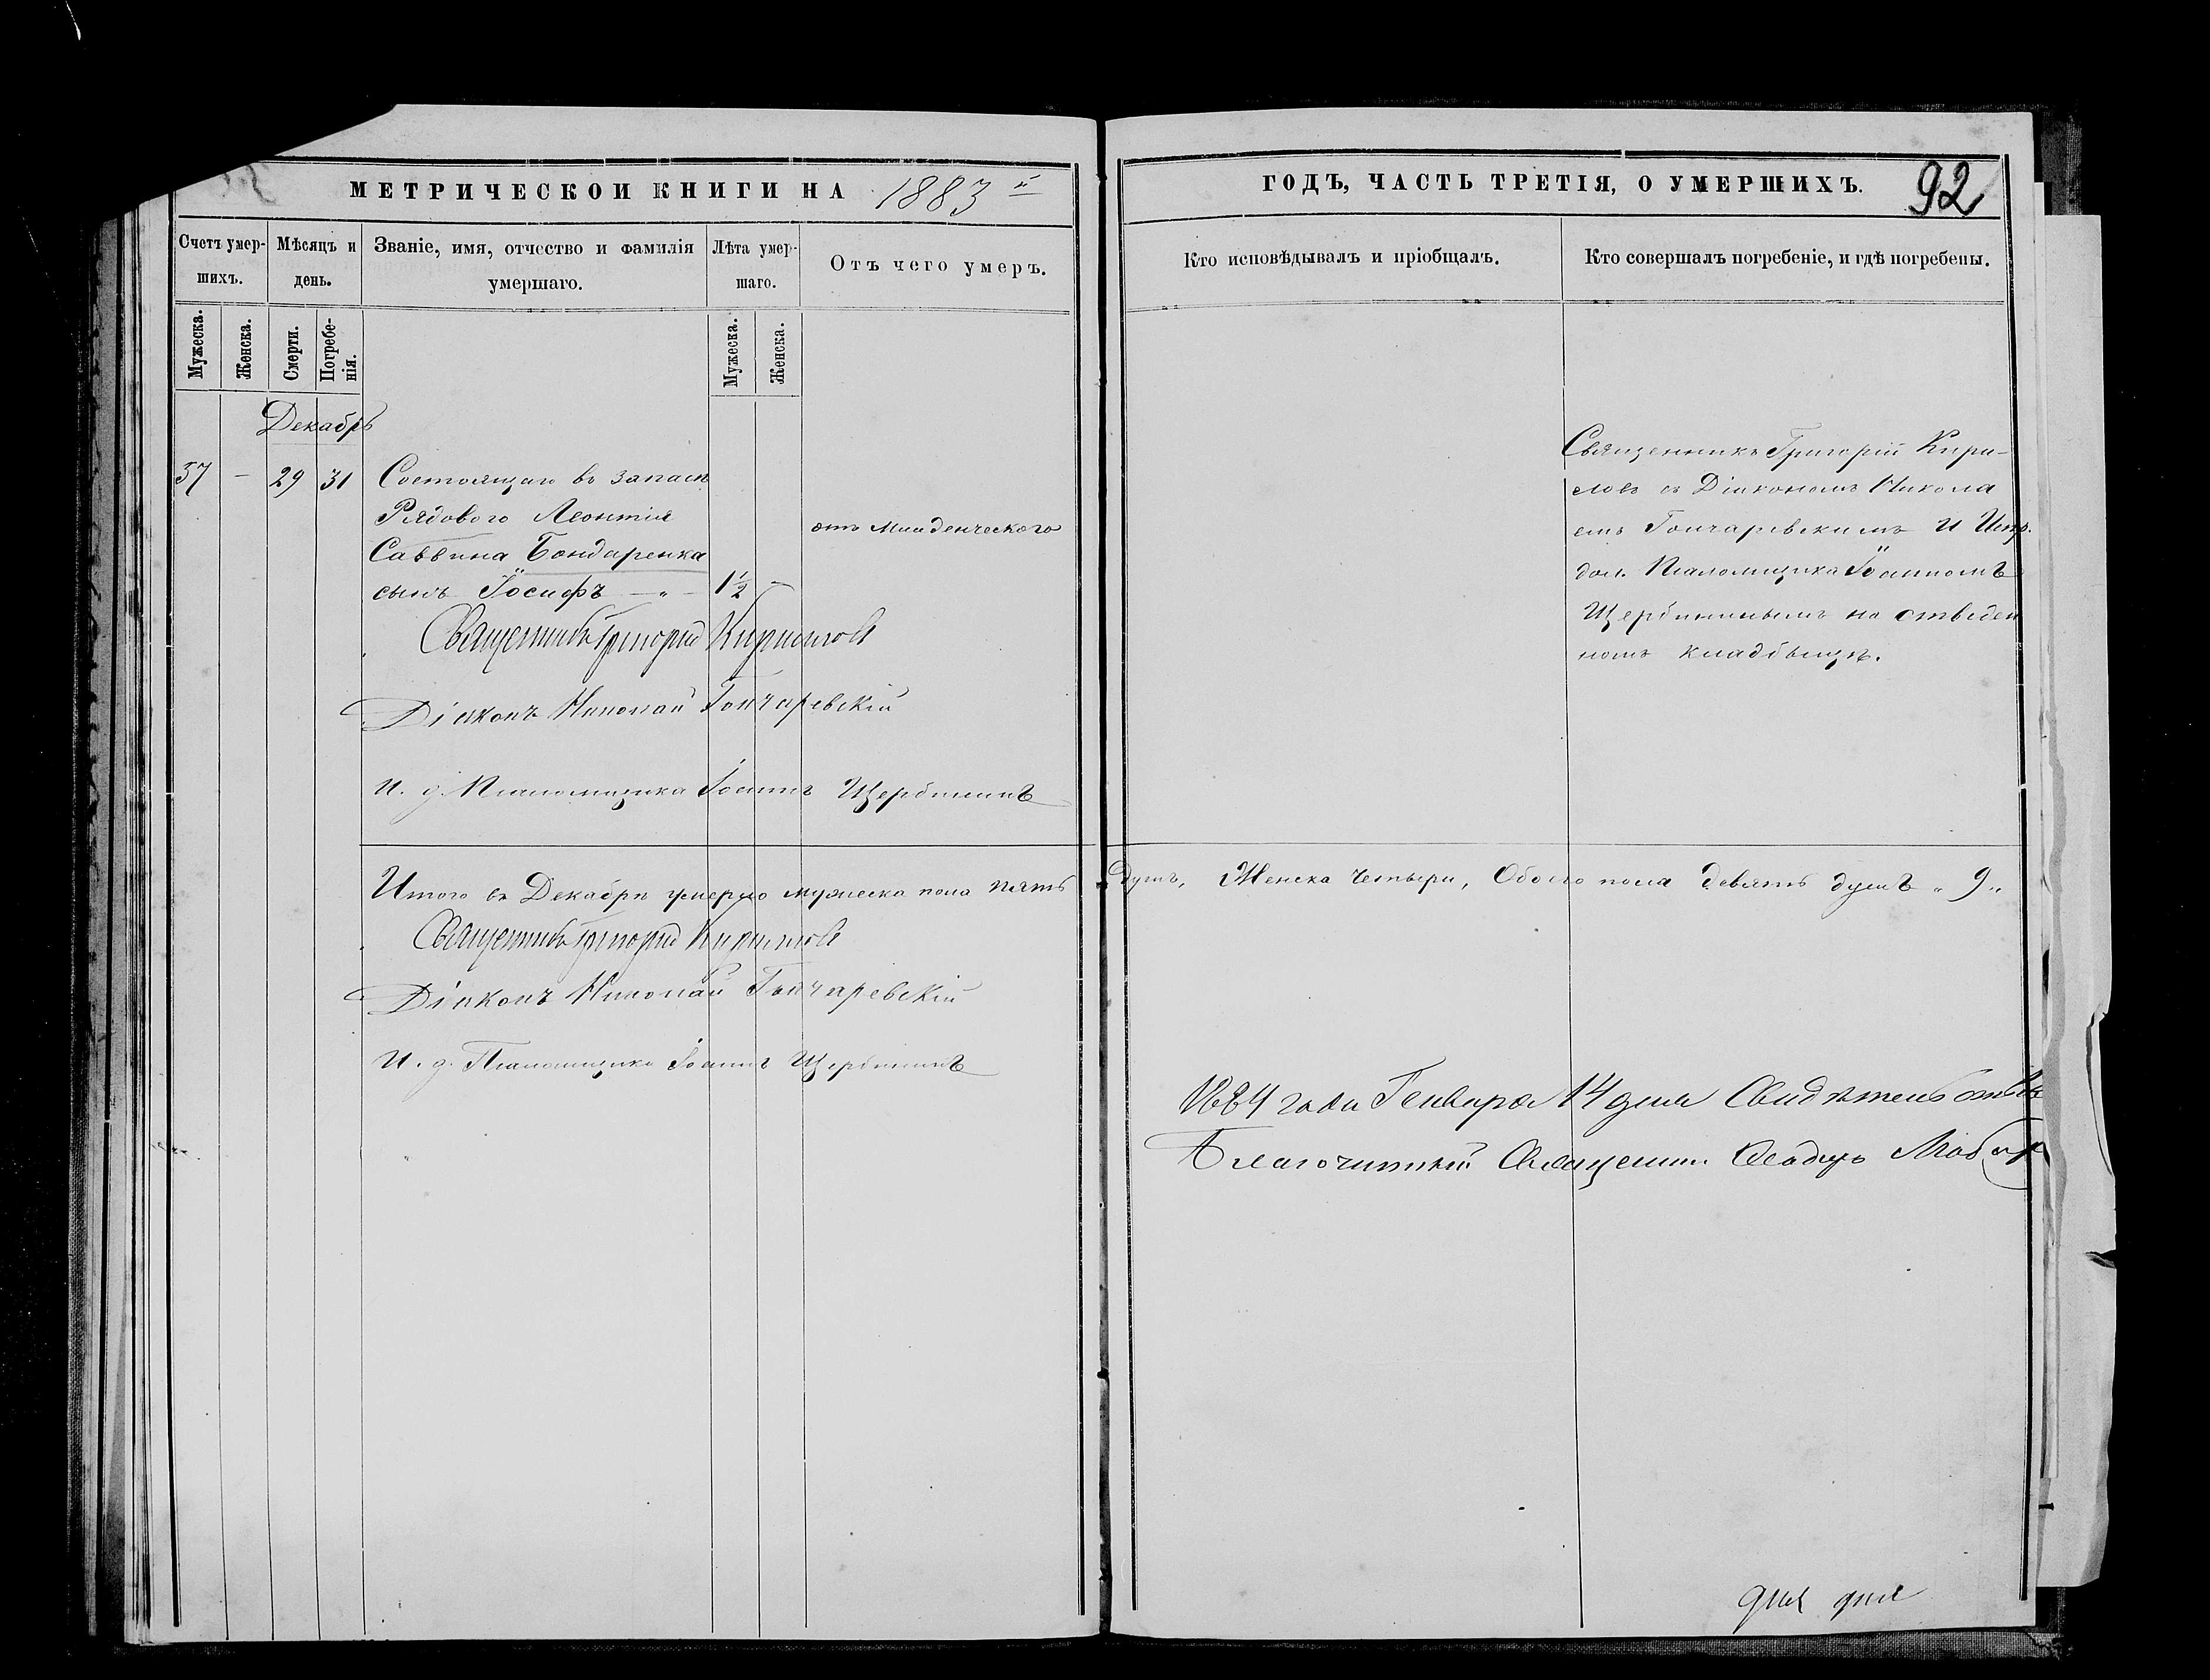 МЕТРИЧЕСКОЙ КНИГИ НА 1883 й
Счетъ умер-
шихъ.
Мѣсяцъ и
день.
Званіе, имя, отчество и фамилія
умершаго.
Лѣта умер-
шаго.
Отъ чего умеръ.
Мужеска.
Женска.
Смерти.
Погребе-
нія.
Мужеска.
Женска.
Декабрь
37 - 29 31 Состоящаго въ запасѣ
Рядового Леонтія
Саввина Бондаренка
сынъ Іосифъ — „ — 1½ -
отъ младенческаго
Священникъ Григорій Кириловъ
Діаконъ Николай Гончаревскій
И. д. Псаломщика Іоаннъ Щербининъ
Итого въ Декабрѣ умерло мужеска пола пять
Священникъ Григорій Кириловъ
Діаконъ Николай Гончаревскій
И. д. Псаломщика Іоаннъ Щербининъ
ГОДЪ, ЧАСТЬ ТРЕТІЯ, О УМЕРШИХЪ. 92
Кто исповѣдывалъ и пріобщалъ.
Кто совершалъ погребеніе, и гдѣ погребены.
Священникъ Григорій Кири-
ловъ съ Діакономъ Никола
емъ Гончаревскимъ и Испр.
дол. Псаломщика Іоанномъ
Щербининымъ на отведен
номъ кладбищѣ.
душъ, Женска четыри, Обоего пола девять душъ „ 9 „
1884 года Генваря 14 дня Свидѣтельств
Благочинный Священник